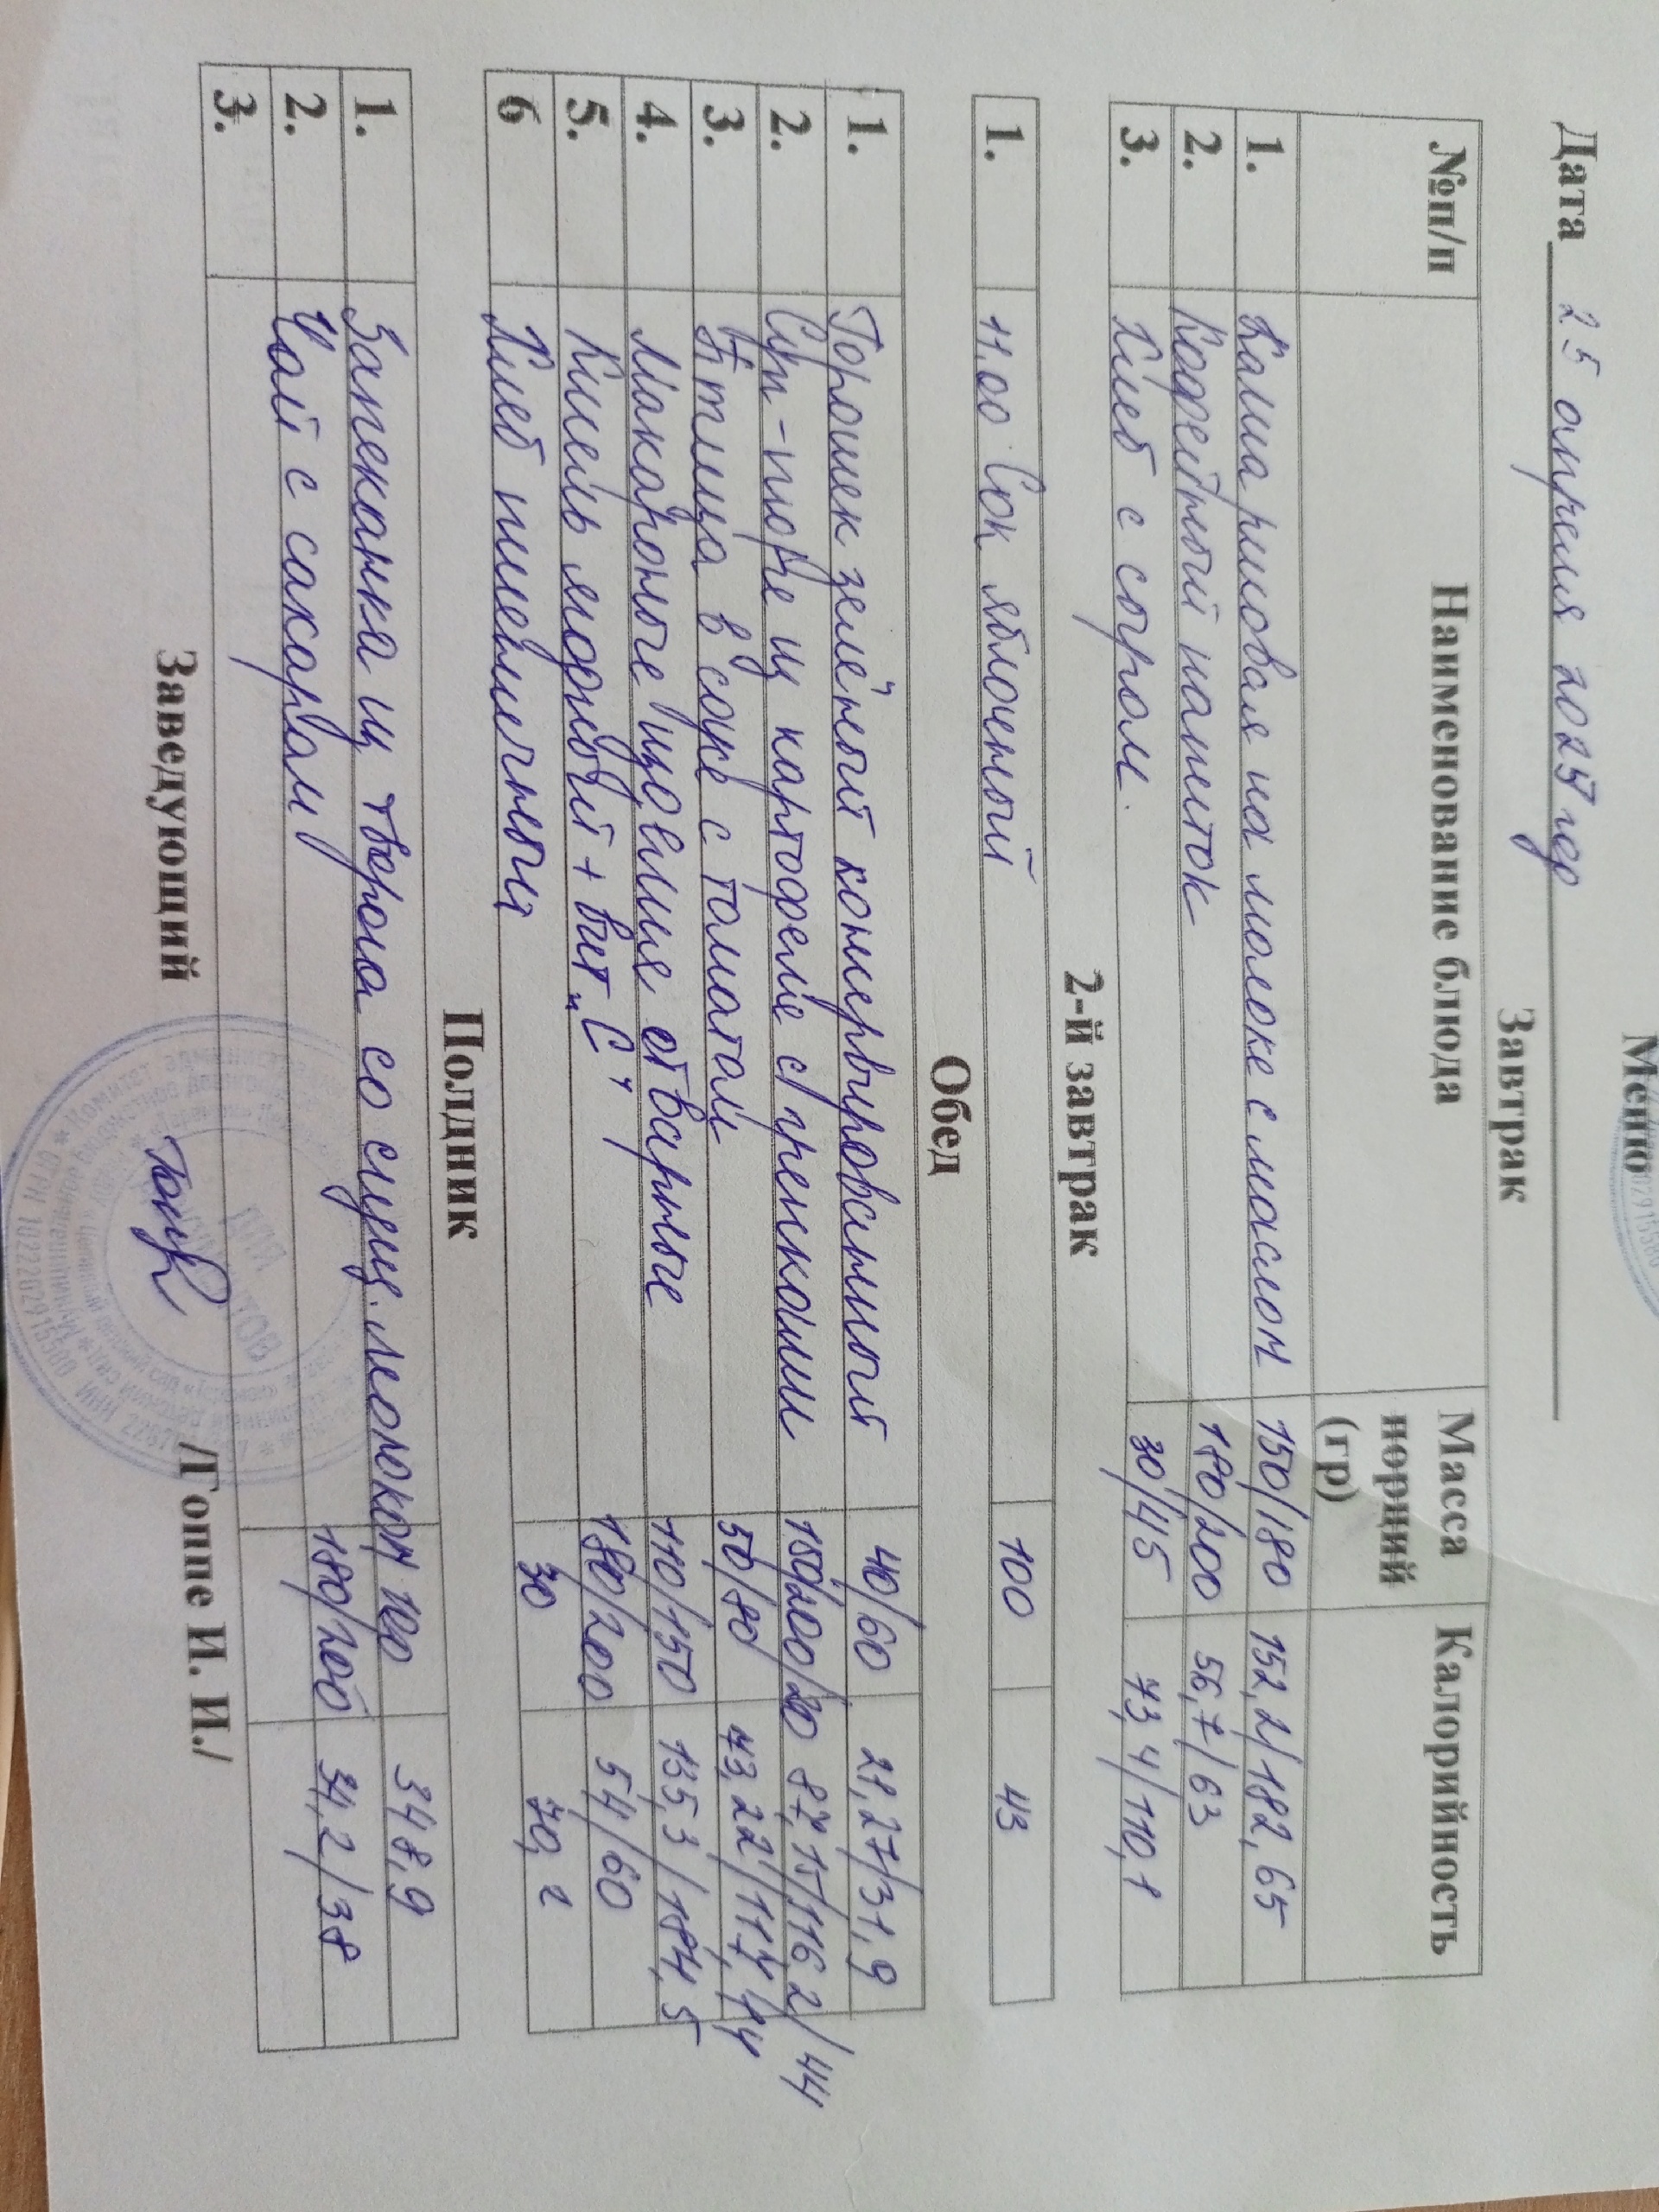 Меню
Дата 25 апреля 2025 год
Завтрак
№п/п Наименование блюда Масса порций (гр) Калорийность
1. Каша рисовая на молоке с маслом 150/180 152,2/182,65
2. Кофейный напиток 180/200 56,7/63
3. Хлеб с сыром. 30/45 73,4/110,1
2-й завтрак
1. 11.00 Сок яблочный 100 43
Обед
1. Горошек зелёный консервированный 40/60 21,27/31,9
2. Суп-пюре из картофеля с гренками 150/200/20 87,15/116,2/44
3. Птица в соусе с томатом 50/80 73,22/117,14
4. Макаронные изделия отварные 110/150 135,3/184,5
5. Кисель ягодный + Вит „С" 180/200 54/60
6 Хлеб пшеничный 30 70,2
Полдник
1. Запеканка из творога со сгущ. молоком 100 348,9
2. Чай с сахаром 180/200 34,2/38
3.
Заведующий /Гоппе И. И./